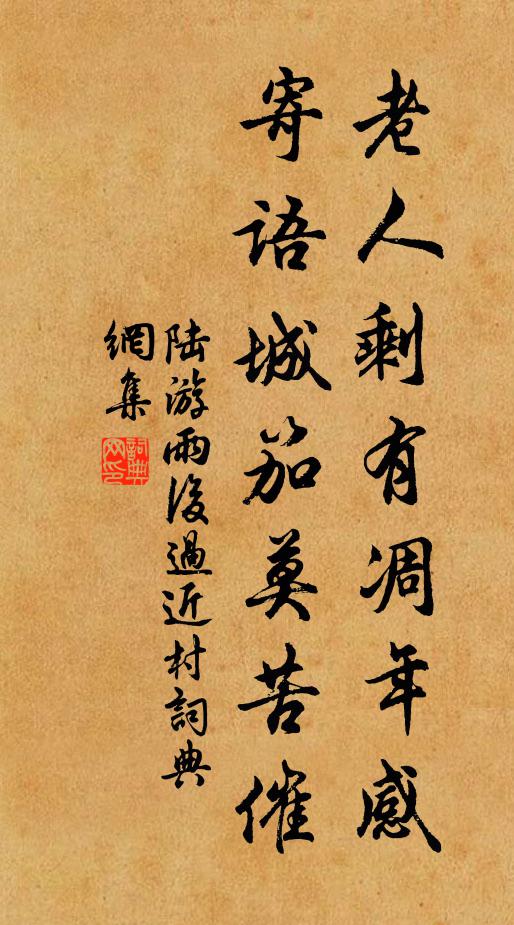 老人剩有凋年感
寄語城笳莫苦催
陆游雨後過近村詞典
網集
詞典
网印